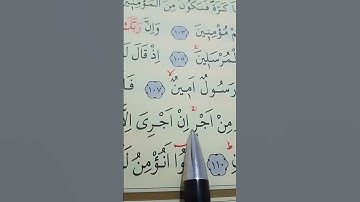 كَرَّةً فَنَكُونَ مِنَ الْمُؤْمِنِينَ
مُؤْمِنِينَ ﴿١٠٣﴾ وَاِنَّ رَبَّكَ
الْمُرْسَلِينَ ﴿١٠٥﴾ اِذْ قَالَ
رَسُولٌ اَمِينٌ ﴿١٠٧﴾
مِنْ اَجْرٍ اِنْ اَجْرِىَ اِلَّا
﴿١١٠﴾ اَنُؤْمِنُ